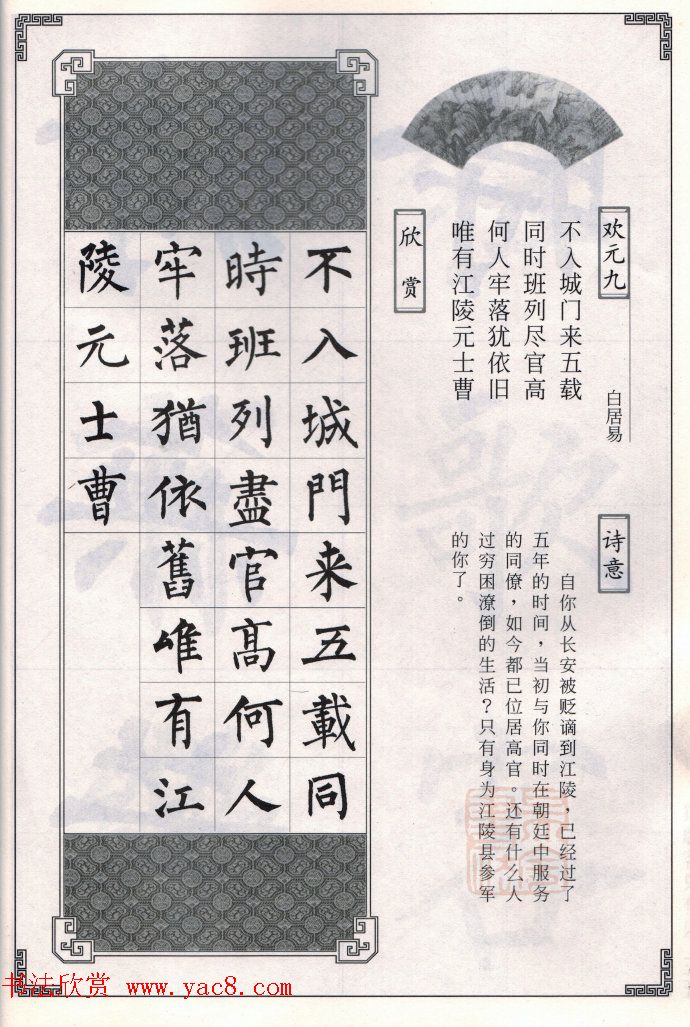 欢元九
白居易
不入城门来五载
同时班列尽官高
何人牢落犹依旧
唯有江陵元士曹
诗意
自你从长安被贬谪到江陵，已经过了
五年的时间，当初与你同时在朝廷中服务
的同僚，如今都已位居高官。还有什么人
过穷困潦倒的生活？只有身为江陵县参军
的你了。
欣赏
不入城門来五載同
時班列盡官高何人
牢落猶依舊唯有江
陵元士曹
书法欣赏 www.yac8.com